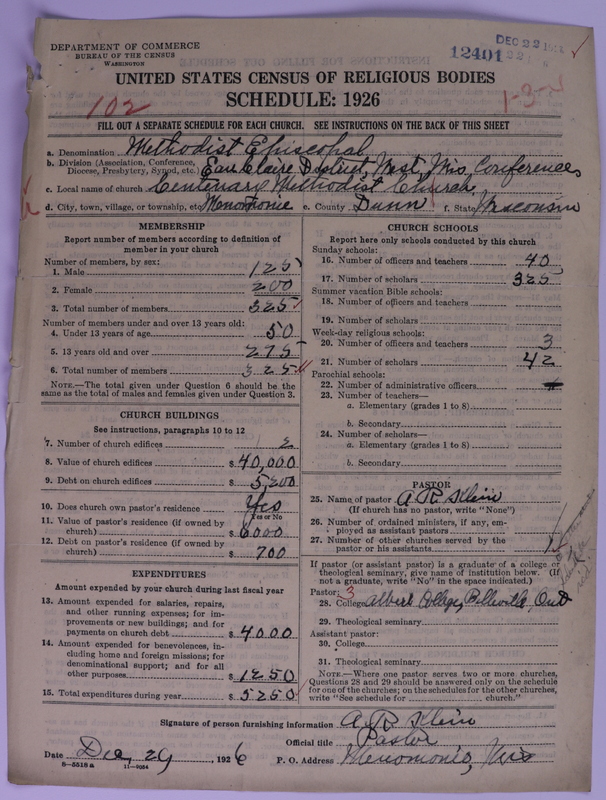 DEPARTMENT OF COMMERCE
BUREAU OF THE CENSUS
WASHINGTON
12401
DEC 22
UNITED STATES CENSUS OF RELIGIOUS BODIES
SCHEDULE: 1926
102
1-3-
FILL OUT A SEPARATE SCHEDULE FOR EACH CHURCH. SEE INSTRUCTIONS ON THE BACK OF THIS SHEET
a. Denomination Methodist Episcopal
b. Division (Association, Conference, Diocese, Presbytery, Synod, etc.) Eau Claire District, West Wis Conferences
c. Local name of church Centenary Methodist Church
d. City, town, village, or township, etc. Menomonie e. County Dunn f. State Wisconsin
MEMBERSHIP
Report number of members according to definition of
member in your church
Number of members, by sex:
1. Male 125
2. Female 200
3. Total number of members 325
Number of members under and over 13 years old:
4. Under 13 years of age 50
5. 13 years old and over 275
6. Total number of members 325
NOTE.—The total given under Question 6 should be
same as the total of males and females given under Question 3.
CHURCH BUILDINGS
See instructions, paragraphs 10 to 12
7. Number of church edifices 2
8. Value of church edifices $40,000
9. Debt on church edifices $5,200
10. Does church own pastor's residence Yes
Yes or No
11. Value of pastor's residence (if owned by
church) $6000
12. Debt on pastor's residence (if owned by
church) $700
EXPENDITURES
Amount expended by your church during last fiscal year
13. Amount expended for salaries, repairs,
and other running expenses; for im-
provements or new buildings; and for
payments on church debt $4000
14. Amount expended for benevolences, in-
cluding home and foreign missions; for
denominational support; and for all
other purposes $1250
15. Total expenditures during year $5250
CHURCH SCHOOLS
Report here only schools conducted by this church
Sunday schools:
16. Number of officers and teachers 40
17. Number of scholars 325
Summer vacation Bible schools:
18. Number of officers and teachers
19. Number of scholars
Week-day religious schools:
20. Number of officers and teachers 3
21. Number of scholars 42
Parochial schools:
22. Number of administrative officers
23. Number of teachers—
a. Elementary (grades 1 to 8)
b. Secondary
24. Number of scholars—
a. Elementary (grades 1 to 8)
b. Secondary
PASTOR
25. Name of pastor A R Klein
(If church has no pastor, write "None")
26. Number of ordained ministers, if any, em-
ployed as assistant pastors
27. Number of other churches served by the
pastor or his assistants 1
If pastor (or assistant pastor) is a graduate of a college or
theological seminary, give name of institution below. (If
not a graduate, write "No" in the space indicated.)
Pastor: 3
28. College Albert College, Belleville, Ont
29. Theological seminary
Assistant pastor:
30. College
31. Theological seminary
NOTE.—Where one pastor serves two or more churches,
Questions 28 and 29 should be answered only on the schedule
for one of the churches; on the schedules for the other churches,
write "See schedule for church."
Signature of person furnishing information A R Klein
Official title Pastor
Date Dec, 29, 1926 P. O. Address Menomonie, Wis
8—5518a 11—9034